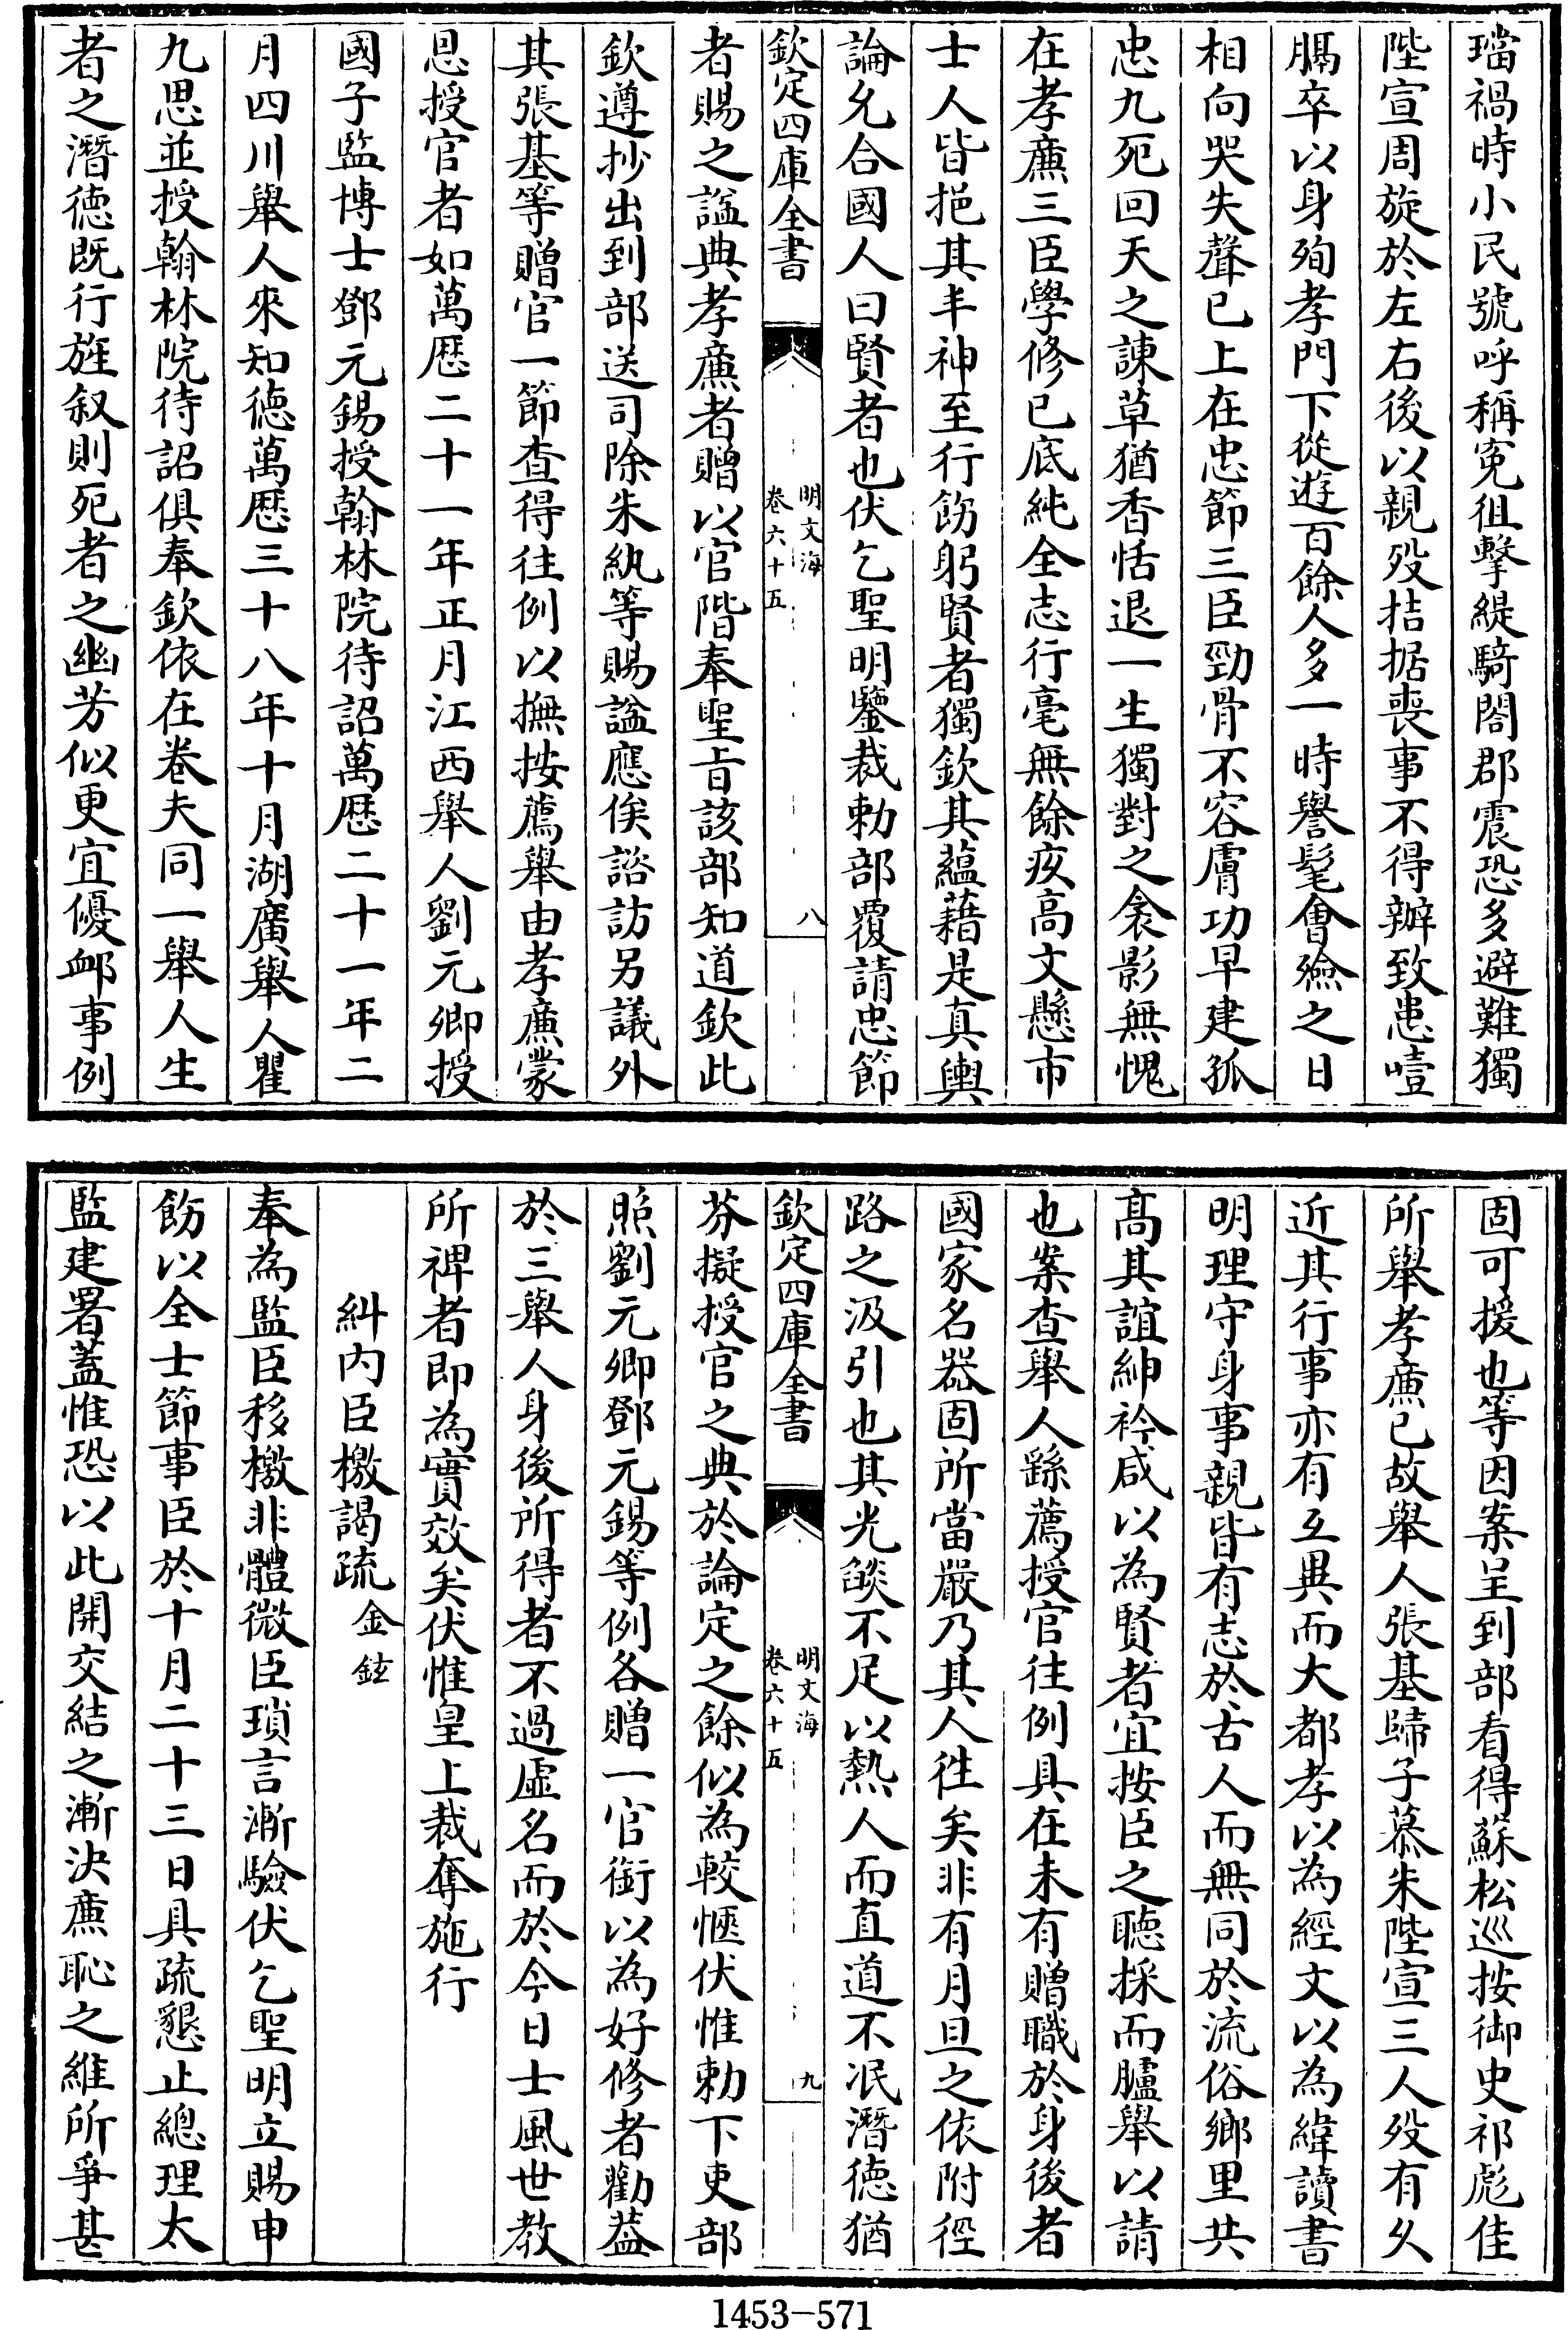 璫禍時小民號呼稱寃徂擊緹騎閤郡震恐多避難獨
陛宣周旋於左右後以親殁拮据喪事不得辦致患噎
膈卒以身殉孝門下從遊百餘人多一時譽髦會殮之日
相向哭失聲已上在忠節三臣勁骨不容膚功早建孤
忠九死回天之諫草猶香恬退一生獨對之衾影無愧
在孝廉三臣學修已底純全志行毫無餘疚高文懸市
士人皆挹其丰神至行飭躬賢者獨欽其蘊藉是真輿
論允合國人曰賢者也伏乞聖明鑒裁勅部覆請忠節
欽定四庫全書
明文海
卷六十五
八
者賜之諡典孝廉者贈以官階奉聖旨該部知道欽此
欽遵抄出到部送司除朱紈等賜諡應俟諮訪另議外
其張基等贈官一節查得往例以撫按薦舉由孝廉蒙
恩授官者如萬厯二十一年正月江西舉人劉元卿授
國子監博士鄧元錫授翰林院待詔萬厯二十一年二
月四川舉人來知德萬厯三十八年十月湖廣舉人瞿
九思並授翰林院待詔俱奉欽依在卷夫同一舉人生
者之潛德既行旌叙則死者之幽芳似更宜優䘏事例
固可援也等因案呈到部看得蘇松巡按御史祁彪佳
所舉孝廉已故舉人張基歸子慕朱陛宣三人殁有久
近其行事亦有互異而大都孝以為經文以為緯讀書
明理守身事親皆有志於古人而無同於流俗鄉里共
高其誼紳衿咸以為賢者宜按臣之聽採而臚舉以請
也案查舉人繇薦授官往例具在未有贈職於身後者
國家名器固所當嚴乃其人徃矣非有月旦之依附徑
路之汲引也其光燄不足以熱人而直道不泯潛德猶
欽定四庫全書
明文海
卷六十五
九
芬擬授官之典於論定之餘似為較愜伏惟勅下吏部
照劉元卿鄧元錫等例各贈一官銜以為好修者勸葢
於三舉人身後所得者不過虛名而於今日士風世教
所裨者即為實效矣伏惟皇上裁奪施行
糾内臣檄謁疏 金鉉
奉為監臣移檄非體微臣瑣言漸驗伏乞聖明立賜申
飭以全士節事臣於十月二十三日具疏懇止總理太
監建署蓋惟恐以此開交結之漸決廉恥之維所爭甚
1453-571